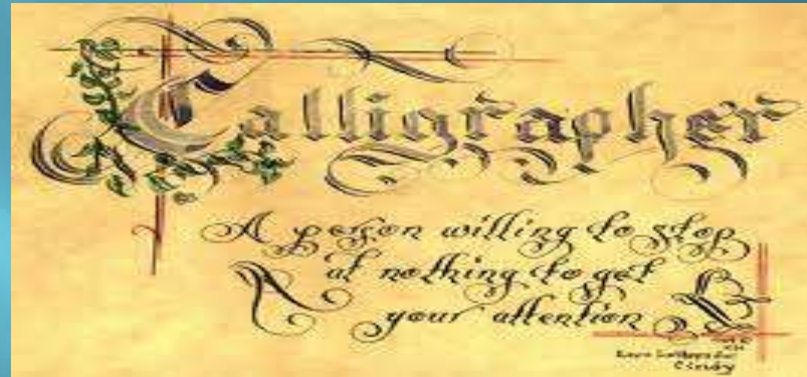 Calligrapher
A person willing to stop
at nothing to get
your attention
Cindy